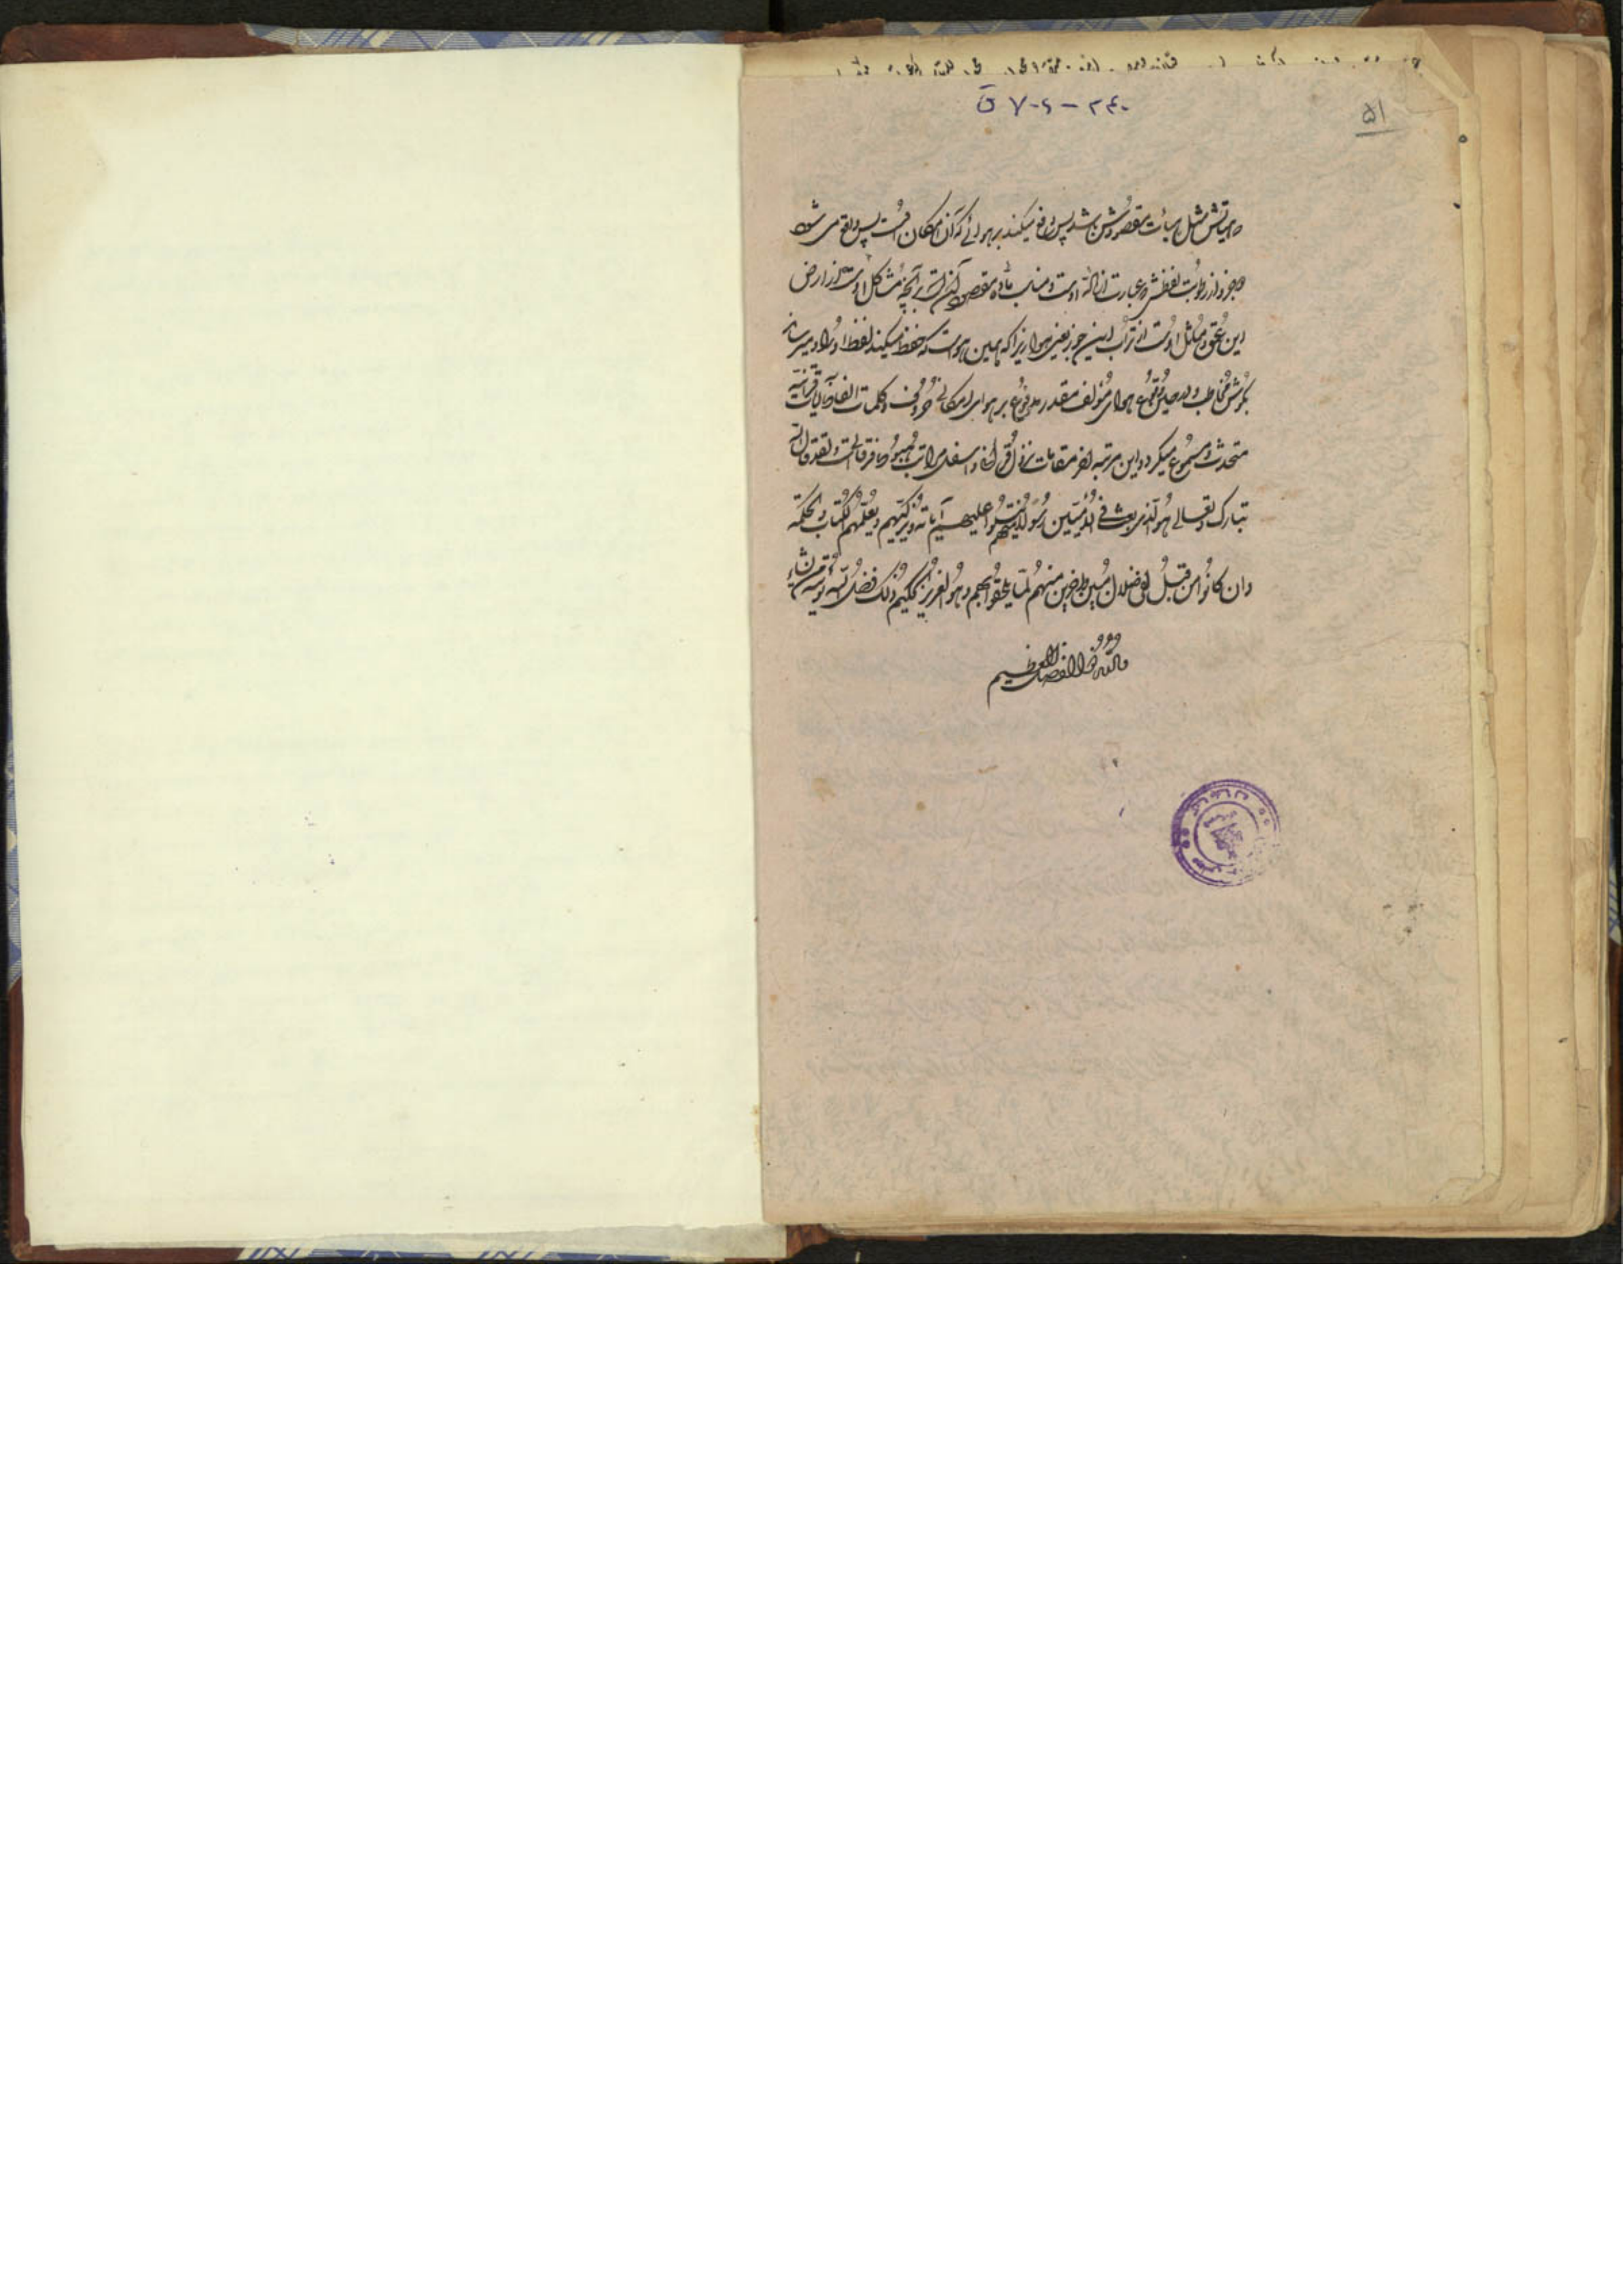 ۲۴۰ - ۷۰۶ ق
۵۱
مثل هیأت مقصودش باشد پس دفع میکند بر هوائے که آن امکان است پس واقع می شود
و جزو از رطوبت لفظش و عبارت از ماده اوست و مناسب ماده مقصود آنچه مشاکل اوست از ارض
این عمق و مماثل اوست از تراب این جوز یعنی هوا زیرا که همین هواست که حفظ میکند لفظ او را و میرساند
بگوش مخاطب و در حین وقوع هوای مؤلف مقدر مدفوع بر هوای امکانی حروف و کلمات الفاظ آیات قرآنیه
متحدث و مسموع میگردد و این مرتبه آخر مقامات نزول قرآن و اسفل مراتب هبوط فرقانست و لقد قال الله
تبارک و تعالی هو الذی بعث فی الامیین رسولا منهم یتلوا علیهم آیاته و یزکیهم و یعلمهم الکتاب و الحکمة
و ان کانوا من قبل لفی ضلال مبین و آخرین منهم لما یلحقوا بهم و هو العزیز الحکیم ذلک فضل الله یؤتیه من یشاء
والله ذو الفضل العظیم